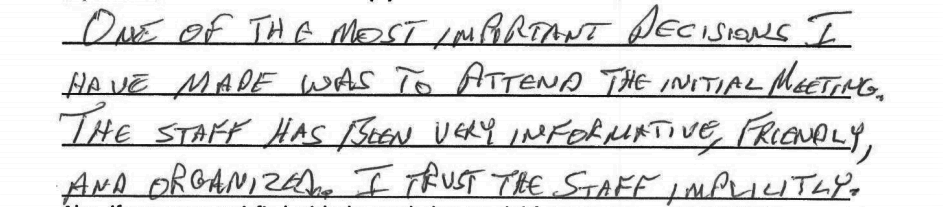 ONE OF THE MOST IMPORTANT DECISIONS I
HAVE MADE WAS TO ATTEND THE INITIAL MEETING.
THE STAFF HAS BEEN VERY INFORMATIVE, FRIENDLY,
AND ORGANIZED. I TRUST THE STAFF IMPLICITLY.